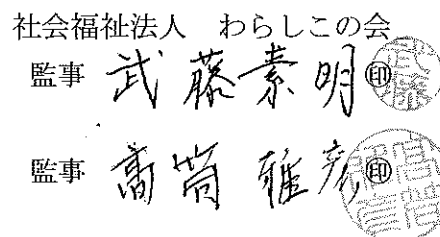 社会福祉法人　わらしこの会
監事 武藤素明㊞ 武藤
監事 髙筒雅彦㊞